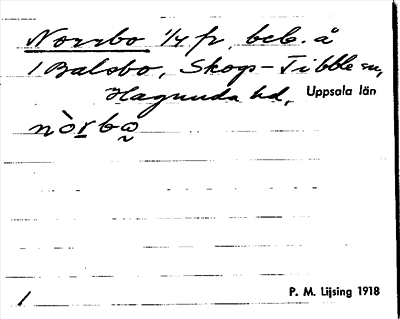 Norrbo 1/4 fr, beb. å
1 Balsbo, Skogs-Tibble sn,
Hagunda hd, Uppsala län
nòrbo
1
P. M. Lijsing 1918